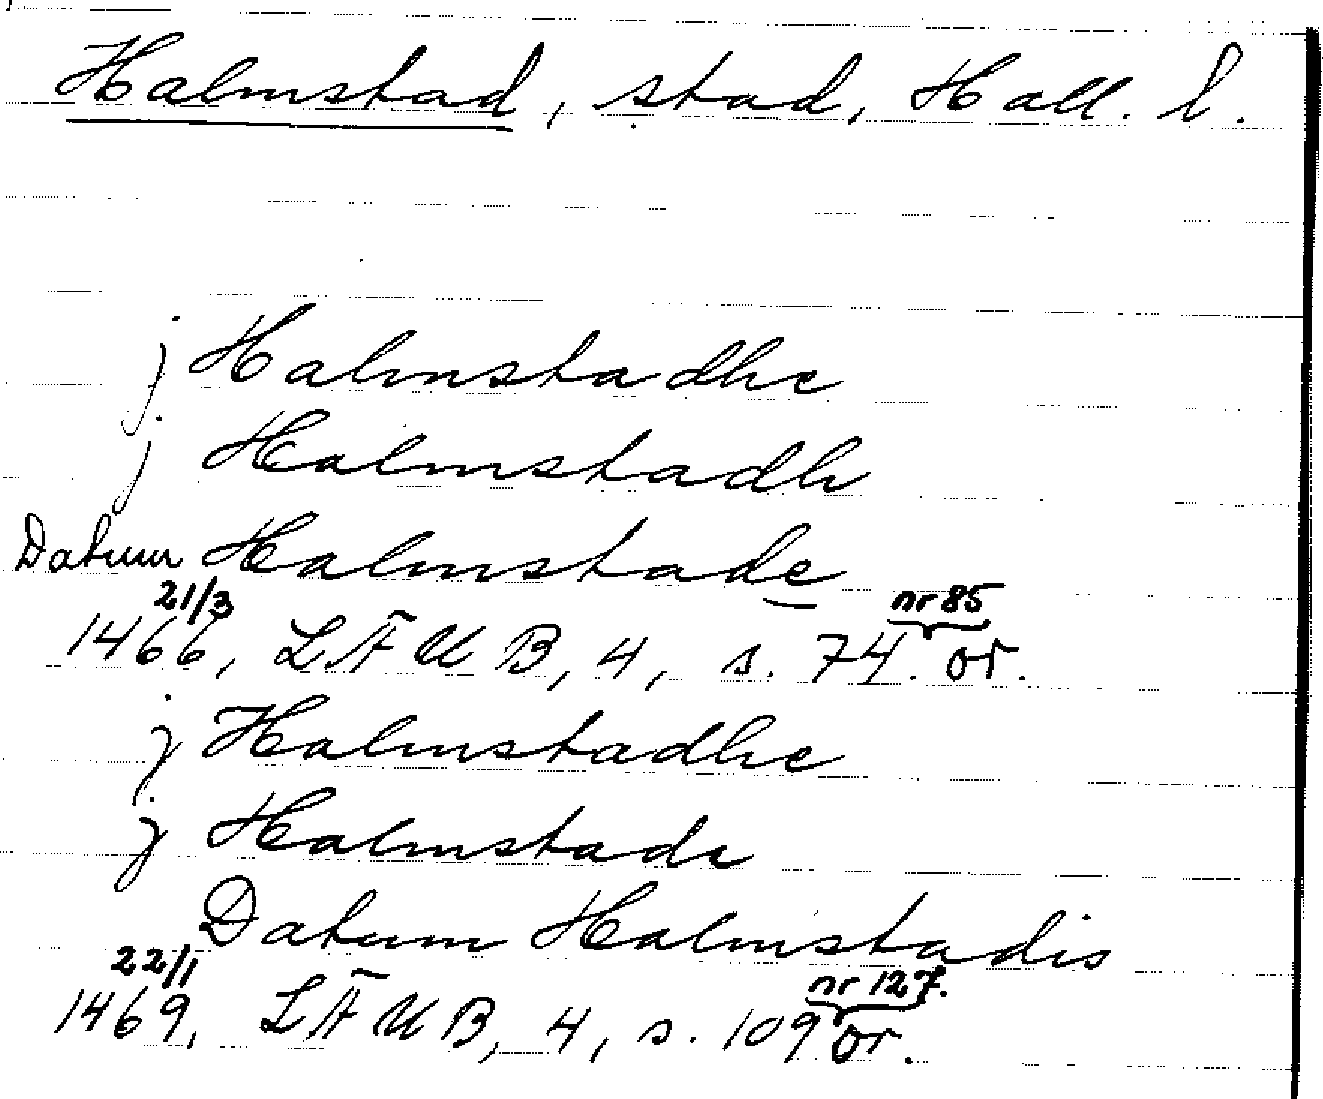 Halmstad, stad, Hall. l.
j Halmstadhe
j Halmstadh
Datum Halmstade
21/3 nr 85
1466, LÄUB, 4, s. 74. or.
j Halmstadhe
j Halmstade
Datum Halmstadis
22/1 nr 127.
1469, LÄUB, 4, s. 109 or.